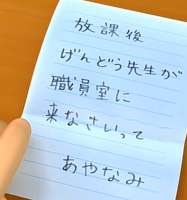 放課後
げんどう先生が
職員室に
来なさいって
あやなみ